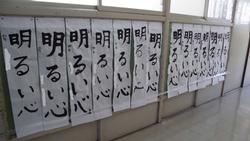 明るい心
明るい心
明るい心
明るい心
明るい心
明るい心
明るい心
明るい心
明るい心
明るい心
明るい心
明るい心
明るい心